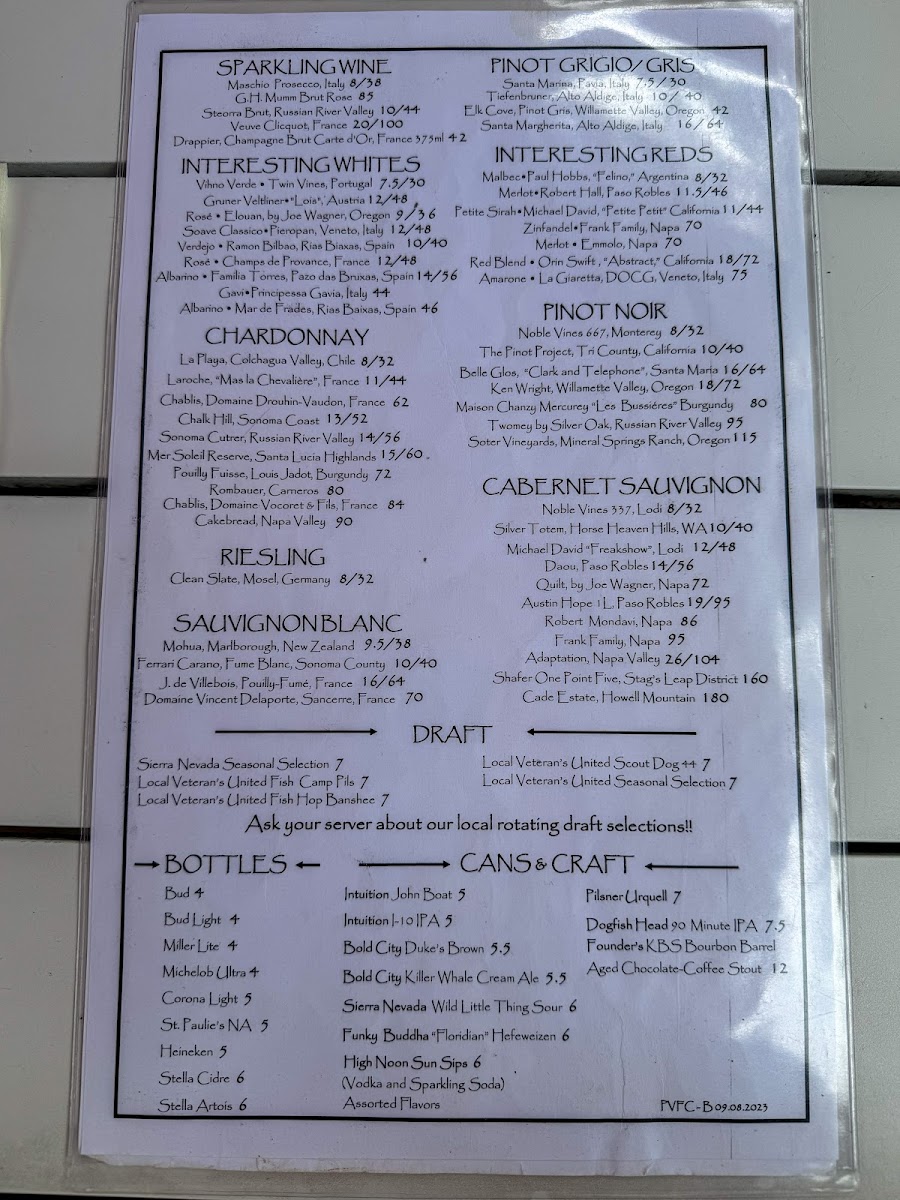 SPARKLING WINE
Maschio Prosecco, Italy 8/38
G.H. Mumm Brut Rose 85
Steorra Brut, Russian River Valley 10/44
Veuve Clicquot, France 20/100
Drappier, Champagne Brut Carte d'Or, France 375ml 42
INTERESTING WHITES
Vihno Verde • Twin Vines, Portugal 7.5/30
Gruner Veltliner•"Lois", Austria 12/48
Rosé • Elouan, by Joe Wagner, Oregon 9/36
Soave Classico•Pieropan, Veneto, Italy 12/48
Verdejo • Ramon Bilbao, Rias Biaxas, Spain 10/40
Rosé • Champs de Provance, France 12/48
Albarino • Familia Torres, Pazo das Bruxas, Spain 14/56
Gavi•Principessa Gavia, Italy 44
Albarino • Mar de Frades, Rias Baixas, Spain 46
CHARDONNAY
La Playa, Colchagua Valley, Chile 8/32
Laroche, "Mas la Chevalière", France 11/44
Chablis, Domaine Drouhin-Vaudon, France 62
Chalk Hill, Sonoma Coast 13/52
Sonoma Cutrer, Russian River Valley 14/56
Mer Soleil Reserve, Santa Lucia Highlands 15/60
Pouilly Fuisse, Louis Jadot, Burgundy 72
Rombauer, Carneros 80
Chablis, Domaine Vocoret & Fils, France 84
Cakebread, Napa Valley 90
RIESLING
Clean Slate, Mosel, Germany 8/32
SAUVIGNON BLANC
Mohua, Marlborough, New Zealand 9.5/38
Ferrari Carano, Fume Blanc, Sonoma County 10/40
J. de Villebois, Pouilly-Fumé, France 16/64
Domaine Vincent Delaporte, Sancerre, France 70
PINOT GRIGIO/ GRIS
Santa Marina, Pavia, Italy 7.5/30
Tiefenbruner, Alto Aldige, Italy 10/ 40
Elk Cove, Pinot Gris, Willamette Valley, Oregon 42
Santa Margherita, Alto Aldige, Italy 16/64
INTERESTING REDS
Malbec•Paul Hobbs, "Felino," Argentina 8/32
Merlot•Robert Hall, Paso Robles 11.5/46
Petite Sirah•Michael David, "Petite Petit" California 11/44
Zinfandel•Frank Family, Napa 70
Merlot • Emmolo, Napa 70
Red Blend • Orin Swift , "Abstract," California 18/72
Amarone • La Giaretta, DOCG, Veneto, Italy 75
PINOT NOIR
Noble Vines 667, Monterey 8/32
The Pinot Project, Tri County, California 10/40
Belle Glos, "Clark and Telephone", Santa Maria 16/64
Ken Wright, Willamette Valley, Oregon 18/72
Maison Chanzy Mercurey "Les Bussiéres" Burgundy 80
Twomey by Silver Oak, Russian River Valley 95
Soter Vineyards, Mineral Springs Ranch, Oregon 115
CABERNET SAUVIGNON
Noble Vines 337, Lodi 8/32
Silver Totem, Horse Heaven Hills, WA 10/40
Michael David "Freakshow", Lodi 12/48
Daou, Paso Robles 14/56
Quilt, by Joe Wagner, Napa 72
Austin Hope 1L, Paso Robles 19/95
Robert Mondavi, Napa 86
Frank Family, Napa 95
Adaptation, Napa Valley 26/104
Shafer One Point Five, Stag's Leap District 160
Cade Estate, Howell Mountain 180
DRAFT
Sierra Nevada Seasonal Selection 7
Local Veteran's United Fish Camp Pils 7
Local Veteran's United Fish Hop Banshee 7
Local Veteran's United Scout Dog 44 7
Local Veteran's United Seasonal Selection 7
Ask your server about our local rotating draft selections!!
BOTTLES
Bud 4
Bud Light 4
Miller Lite 4
Michelob Ultra 4
Corona Light 5
St. Paulie's NA 5
Heineken 5
Stella Cidre 6
Stella Artois 6
CANS & CRAFT
Intuition John Boat 5
Intuition I-10 IPA 5
Bold City Duke's Brown 5.5
Bold City Killer Whale Cream Ale 5.5
Sierra Nevada Wild Little Thing Sour 6
Funky Buddha "Floridian" Hefeweizen 6
High Noon Sun Sips 6
(Vodka and Sparkling Soda)
Assorted Flavors
Pilsner Urquell 7
Dogfish Head 90 Minute IPA 7.5
Founder's KBS Bourbon Barrel
Aged Chocolate-Coffee Stout 12
PVFC-B 09.08.2023